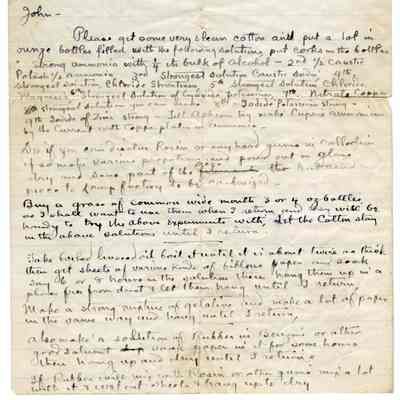 John -
Please get some very clean cotton and put a lot in
ounze bottles filled with the following solutions, put corks in the bottles
strong ammonia with 1/4 its bulk of Alcohol - 2nd 1/2 Caustic
Potash 1/2 ammonia 3rd Strongest Solution Caustic Soda 4th
Strongest solution Chloride Strontium 5th Strongest Solution Chloride
6th 7th Nitrate Copper
Strongest Solution you can make Iodide Potassium strong -
Iodide of Zinc strong - Let make Cupric ammonium
by the current with Copper plates in ammonia -
See if you can dissolve Rosin or any hard gums in Collodion
if so make various proportions and pour out on glass
dry and save part of the the
Buy a gross of common wide mouth 3 or 4 oz bottles
as I shall want to use them when I return and they will be
handy to try the above experiments with, let the Cotton stay
in the above solutions until I return.
Take boiled linseed oil boil it until it is about twice as thick
then get sheets of various kinds of paper and soak
say 6 or 8 hours in the solution then hang them up in a
place free from dust & let them hang until I return,
Make a strong mixture of gelatine and make a lot of paper
in the same way and hang until I return,
also make a solution of Rubber in Benzine or other
good solvent soak paper in it for some hours
then hang up and dry until I return.
If Rubber will mix with Rosin or other gums mix a lot
with it & coat out sheets & hang up to dry